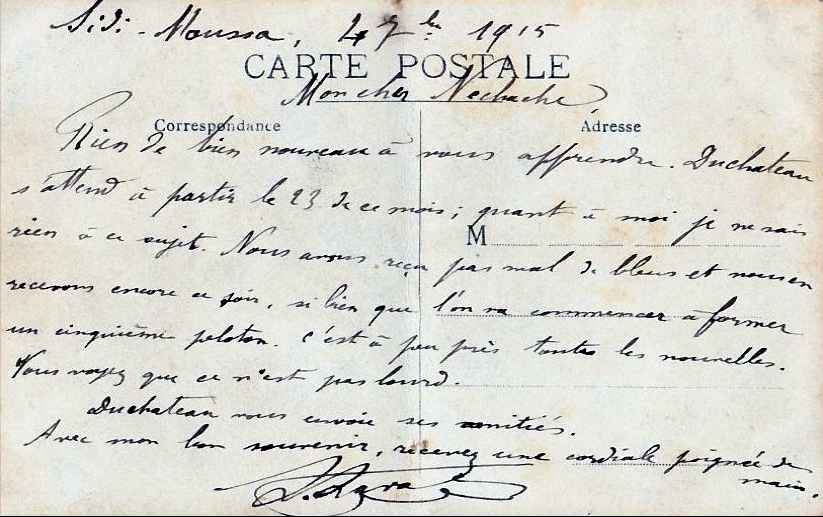 Sidi-Moussa, le 4 7bre 1915
CARTE POSTALE
Mon cher Nechache,
Correspondance
Adresse
Rien de bien nouveau à vous apprendre. Duchateau
s'attend à partir le 23 de ce mois; quant à moi je ne sais
M
rien à ce sujet. Nous avons reçu pas mal de bleus et nous en
recevons encore ce soir, si bien que l'on va commencer à former
un cinquième peloton. C'est à peu près toutes les nouvelles.
Vous voyez que ce n'est pas lourd.
Duchateau vous envoie ses amitiés.
Avec mon bon souvenir, recevez une cordiale poignée de
main.